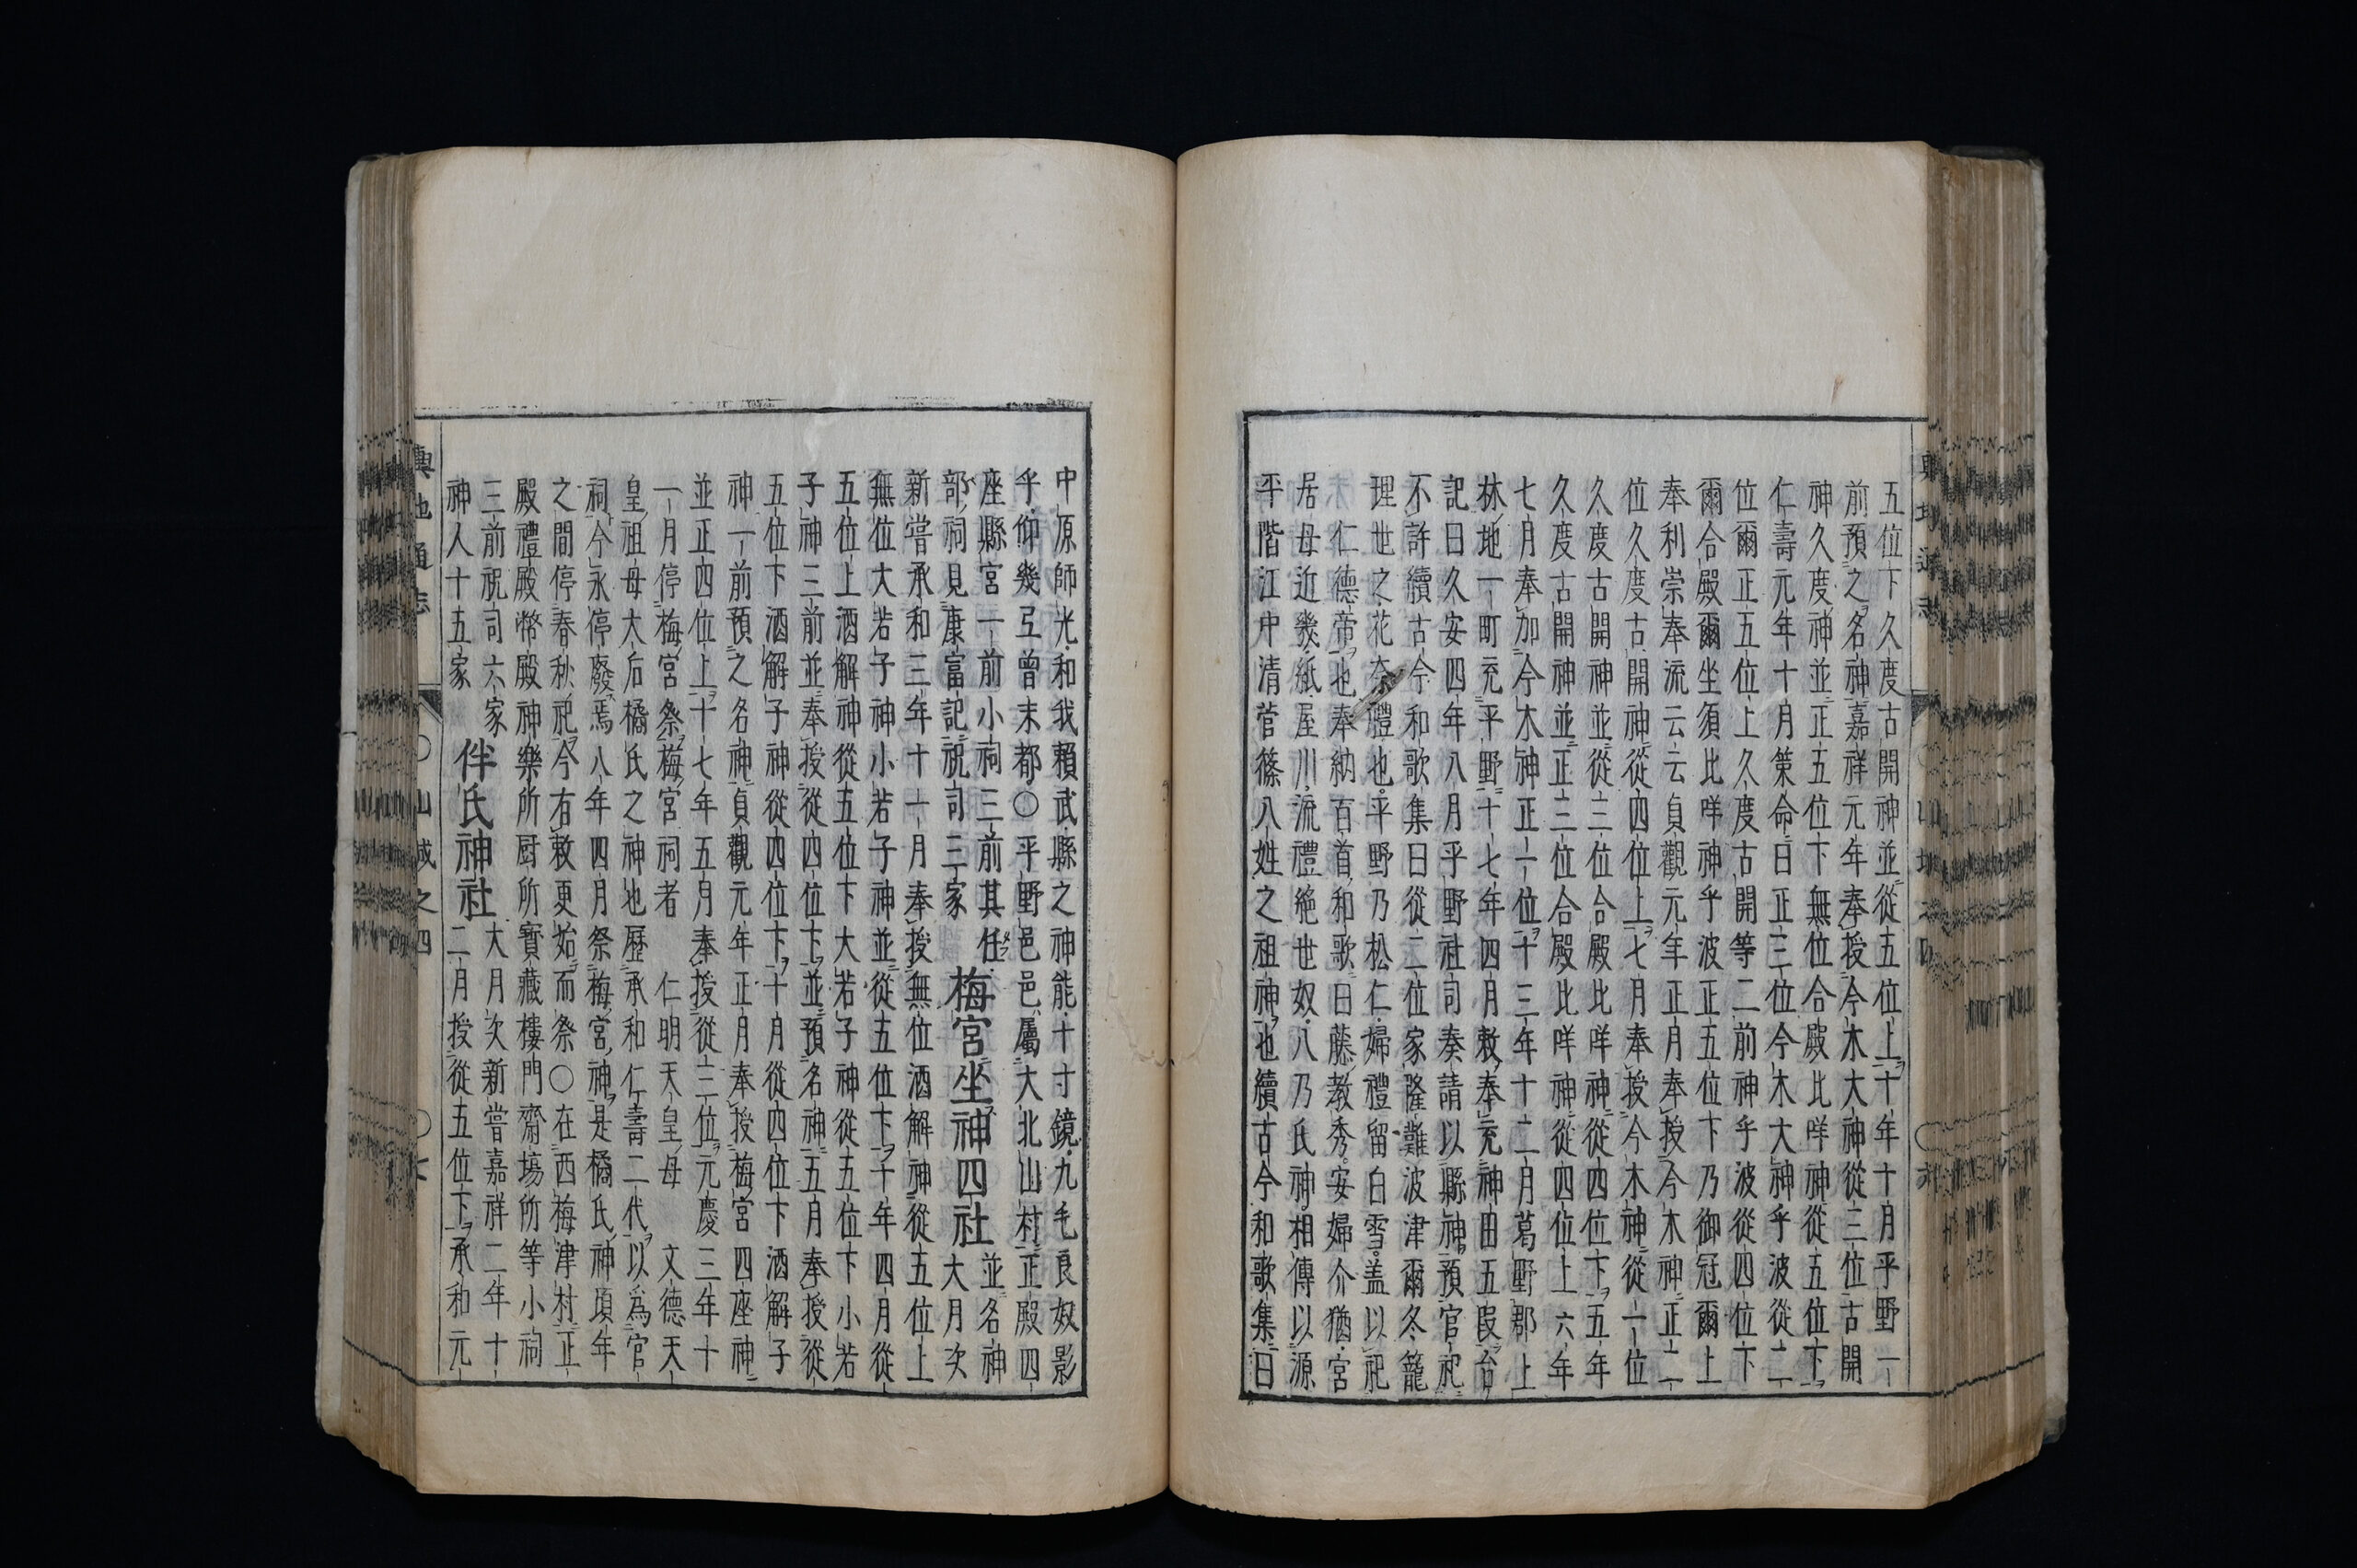 五位下久度古開神並從五位上十年十月平野一
前預之名神嘉祥元年奉授今木大神從三位古開
神久度神並正五位下無位合殿比咩神從五位下
仁壽元年十月策命曰正三位今木大神乎波從二
位爾正五位上久度古開等二前神乎波從四位下
爾合殿爾坐須比咩神乎波正五位下乃御冠爾上
奉利崇奉流云云貞觀元年正月奉授今木神正二
位久度古開神從四位上七月奉授今木神從一位
久度古開神並從三位合殿比咩神從四位下五年
久度古開神並正三位合殿比咩神從四位上六年
七月奉加今木神正一位十三年十二月葛野郡上
林地一町充平野十七年四月敕奉充神田五段台
記曰久安四年八月平野社司奏請以縣神預官祀
不許續古今和歌集曰從二位家隆難波津爾冬籠
理世之花奈禮也平野乃松仁婦禮留白雪蓋以祀
仁德帝也奉納百首和歌曰藤教秀安婦介猶宮
居毋近幾紙屋川流禮絶世奴八乃氏神相傳以源
平階江中清菅篠八姓之祖神也續古今和歌集曰
中原師光和我賴武縣之神能十寸鏡九毛良奴影
乎仰幾弖曾末都〇平野邑邑屬大北山村正殿四
座縣宮一前小祠三前其任 梅宮坐神四社 並名神大月次
新嘗承和三年十一月奉授無位酒解神從五位上
無位大若子神小若子神並從五位下十年四月從
五位上酒解神從五位下大若子神從五位下小若
子神三前並奉授從四位下並預名神五月奉授從
五位下酒解子神從四位下十月從四位下酒解子
神一前預之名神貞觀元年正月奉授梅宮四座神
並正四位上十七年五月奉授從三位元慶三年十
一月停梅宮祭梅宮祠者 仁明天皇母 文德天
皇祖母大后橘氏之神也歷承和仁壽二代以爲官
祠今永停廢焉八年四月祭梅宮神是橘氏神頃年
之間停春秋祀今有敕更始而祭〇在西梅津村正
殿禮殿幣殿神樂所厨所寶藏樓門齋場所等小祠
三前祝司六家 伴氏神社 大月次新嘗嘉祥二年十
二月授從五位下承和元
神人十五家
輿地通志
山城之四